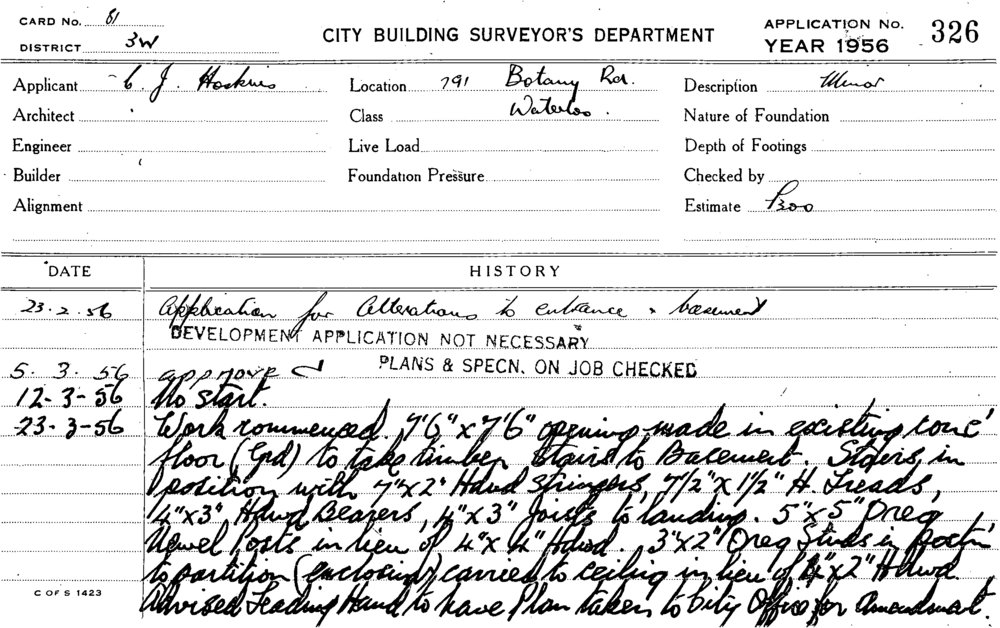 CARD No. 81
DISTRICT 3W
CITY BUILDING SURVEYOR'S DEPARTMENT
APPLICATION No. 326
YEAR 1956
Applicant C. J. Hoskins Location 791 Botany Rd. Description Minor
Architect Class Waterloo. Nature of Foundation
Engineer Live Load Depth of Footings
Builder Foundation Pressure Checked by
Alignment Estimate £300
DATE HISTORY
23.2.56 Application for Alterations to entrance & basement
DEVELOPMENT APPLICATION NOT NECESSARY
PLANS & SPECN. ON JOB CHECKED
5. 3. 56 approve
12-3-56 No start.
23-3-56 Work commenced. 7'6" x 7'6" opening made in existing conc'
floor (Grd) to take timber stairs to Basement. Stairs in
position with 7"x2" Hdwd Stringers, 7 1/2" x 1 1/2" H. Treads,
4"x3" Hdwd Bearers, 4"x3" Joists to landing. 5"x5" Oreg
Newel Posts in lieu of 4"x4" Hdwd. 3"x2" Oreg Studs in positn
to partition (enclosing) carried to ceiling in lieu of 4"x2" Hdwd.
Advised Leading Hand to have Plan taken to City Office for Amendment.
C OF S 1423